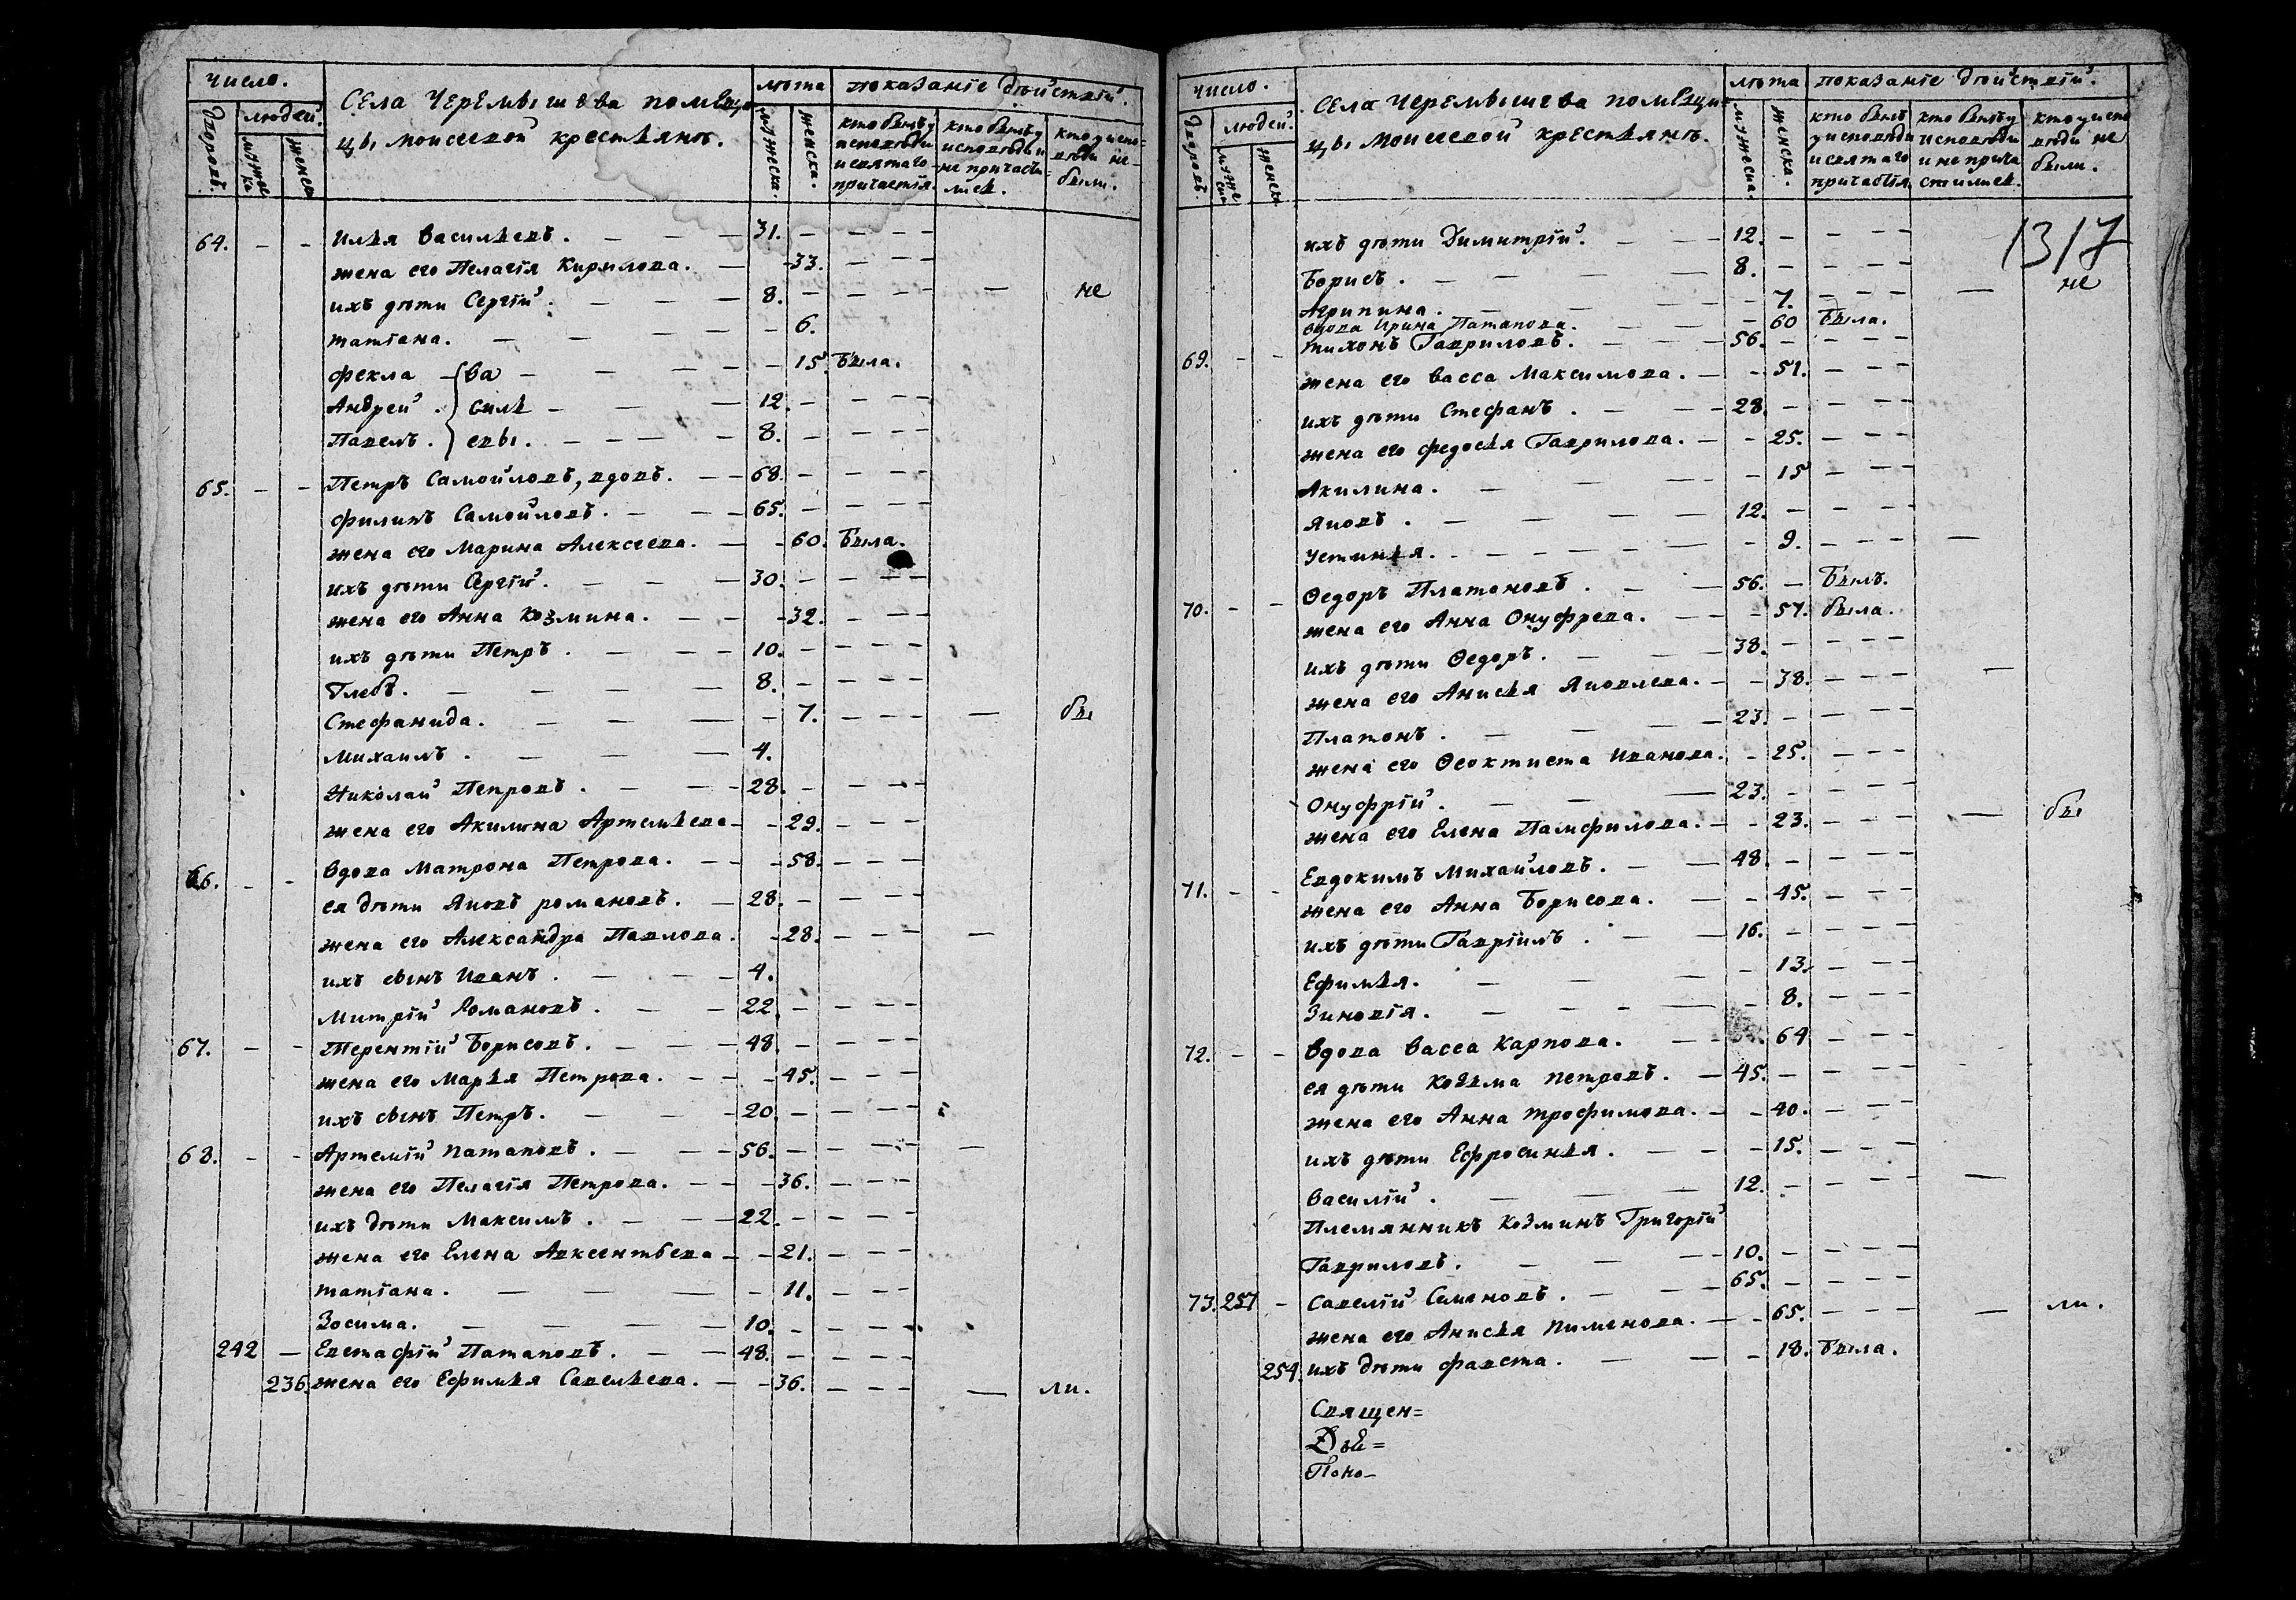 число.
Села Черемышева помѣщи
цы Моисеевой крестьянъ.
лѣта
показанїе дѣйствїй.
дворовъ.
людей.
мужеска
женска
мужеска.
женска.
кто былъ у исповѣди и святаго причастїя.
кто былъ у исповѣди и не причастились.
кто у исповѣди не были.
64. - - Илья Васильевъ. 31.
жена его Пелагїя Кирилова. 33.
ихъ дѣти Сергїй. 8. не
Татїана. 6.
Фекла 15. была.
Андрей 12.
Павелъ 8.
Василь
евы.
65. - - Петръ Самойловъ, вдовъ. 68.
Филипъ Самойловъ. 65.
жена его Марина Алексеева. 60. была.
ихъ дѣти Сергїй. 30.
жена его Анна Козмина. 32.
ихъ дѣти Петръ. 10.
Глебъ. 8.
Стефанида. 7. бы
Михаилъ. 4.
Николай Петровъ. 28.
жена его Акилина Артемьева 29.
66. - - Вдова Матрона Петрова. 58.
ея дѣти Яковъ Романовъ. 28.
жена его Александра Павлова. 28.
ихъ сынъ Иванъ. 4.
Митрїй Романовъ. 22.
67. - - Терентїй Борисовъ. 48.
жена его Марья Петрова. 45.
ихъ сынъ Петръ. 20.
68. - - Артемїй Патаповъ. 56.
жена его Пелагїя Петрова. 36.
ихъ дѣти Максимъ. 22.
жена его Елена Авксентьева 21.
Татїана. 11.
Зосима. 10.
242 Евстафїй Патаповъ. 48.
236. жена его Ефимья Савельева. 36. ли.
число.
Села Черемышева помѣщи=
цы Моисеевой крестьянъ.
лѣта
показанїе дѣйствїй.
дворовъ.
людей.
мужеска
женска
мужеска.
женска.
кто былъ у исповѣди и святаго причастїя
кто былъ у исповѣди и не причастились.
кто у исповѣди не были.
1317
ихъ дѣти Димитрїй. 12.
Борисъ. 8.
Агрипина. 7. не
вдова Ирина Патапова. 60 была.
69. - - Тихонъ Гавриловъ. 56.
жена его Васса Максимова. 51.
ихъ дѣти Стефанъ. 28.
жена его Федосья Гаврилова. 25.
Акилина. 15
Яковъ. 12.
Устинья. 9.
70. - - Ѳедоръ Платоновъ. 56. былъ.
жена его Анна Онуфрева. 57. была.
ихъ дѣти Ѳедоръ. 38.
жена его Анисья Яковлева. 38.
Платонъ. 23.
жена его Ѳеоктиста Иванова. 25.
Онуфрїй. 23.
жена его Елена Памфилова. 23. бы
71. - - Евдокимъ Михайловъ. 48.
жена его Анна Борисова. 45.
ихъ дѣти Гаврїилъ. 16.
Ефимья. 13.
Зиновїя. 8.
72. - - Вдова Васса Карпова. 64
ея дѣти Козьма Петровъ. 45.
жена его Анна Трофимова. 40.
ихъ дѣти Ефросинья. 15.
Василїй. 12.
Племянникъ Козминъ Григорїй
Гавриловъ. 10.
73. 257 - Савелїй Семеновъ. 65.
жена его Анисья Пименова. 65. ли.
254. ихъ дѣти Фавста. 18. была.
Священ=
Дьѣ=
Поно-